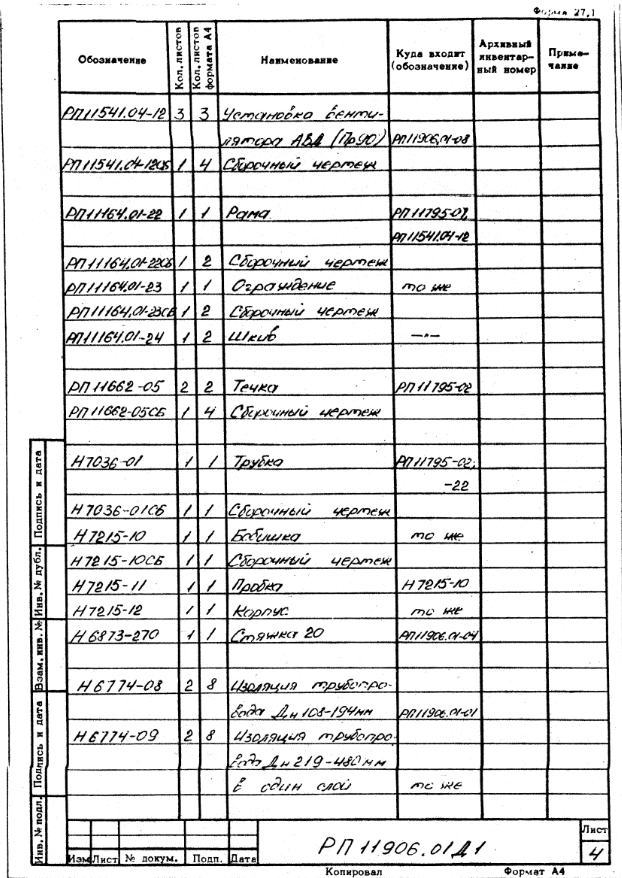 Форма 27.1
Обозначение Кол. листов Кол. листов формата А4 Наименование Куда входит (обозначение) Архивный инвентар- ный номер Приме- чание
РП11541.04-12 3 3 Установка венти-
лятора АВД (Пр90) РП11906.01-08
РП11541.04-12СБ 1 4 Сборочный чертеж
РП11164.01-22 1 1 Рама РП11795-07,
РП11541.04-12
РП11164.01-22СБ 1 2 Сборочный чертеж
РП11164.01-23 1 1 Ограждение то же
РП11164.01-23СБ 1 2 Сборочный чертеж
РП11164.01-24 1 2 Шкив —"—
РП11662-05 2 2 Течка РП11795-02
РП11662-05СБ 1 4 Сборочный чертеж
Н7036-01 1 1 Трубка РП11795-02;
-22
Н7036-01СБ 1 1 Сборочный чертеж
Н7215-10 1 1 Бобышка то же
Н7215-10СБ 1 1 Сборочный чертеж
Н7215-11 1 1 Пробка Н7215-10
Н7215-12 1 1 Корпус то же
Н6873-270 1 1 Стяжка 20 РП11906.01-04
Н6774-08 2 8 Изоляция трубопро-
вода Дн 108-194мм РП11906.01-01
Н6774-09 2 8 Изоляция трубопро-
вода Дн 219-480мм
в один слой то же
Инв. № подл. Подпись и дата Взам. инв. № Инв. № дубл. Подпись и дата
РП 11906.01Д1
Лист
4
Изм Лист № докум. Подп. Дата
Копировал Формат А4